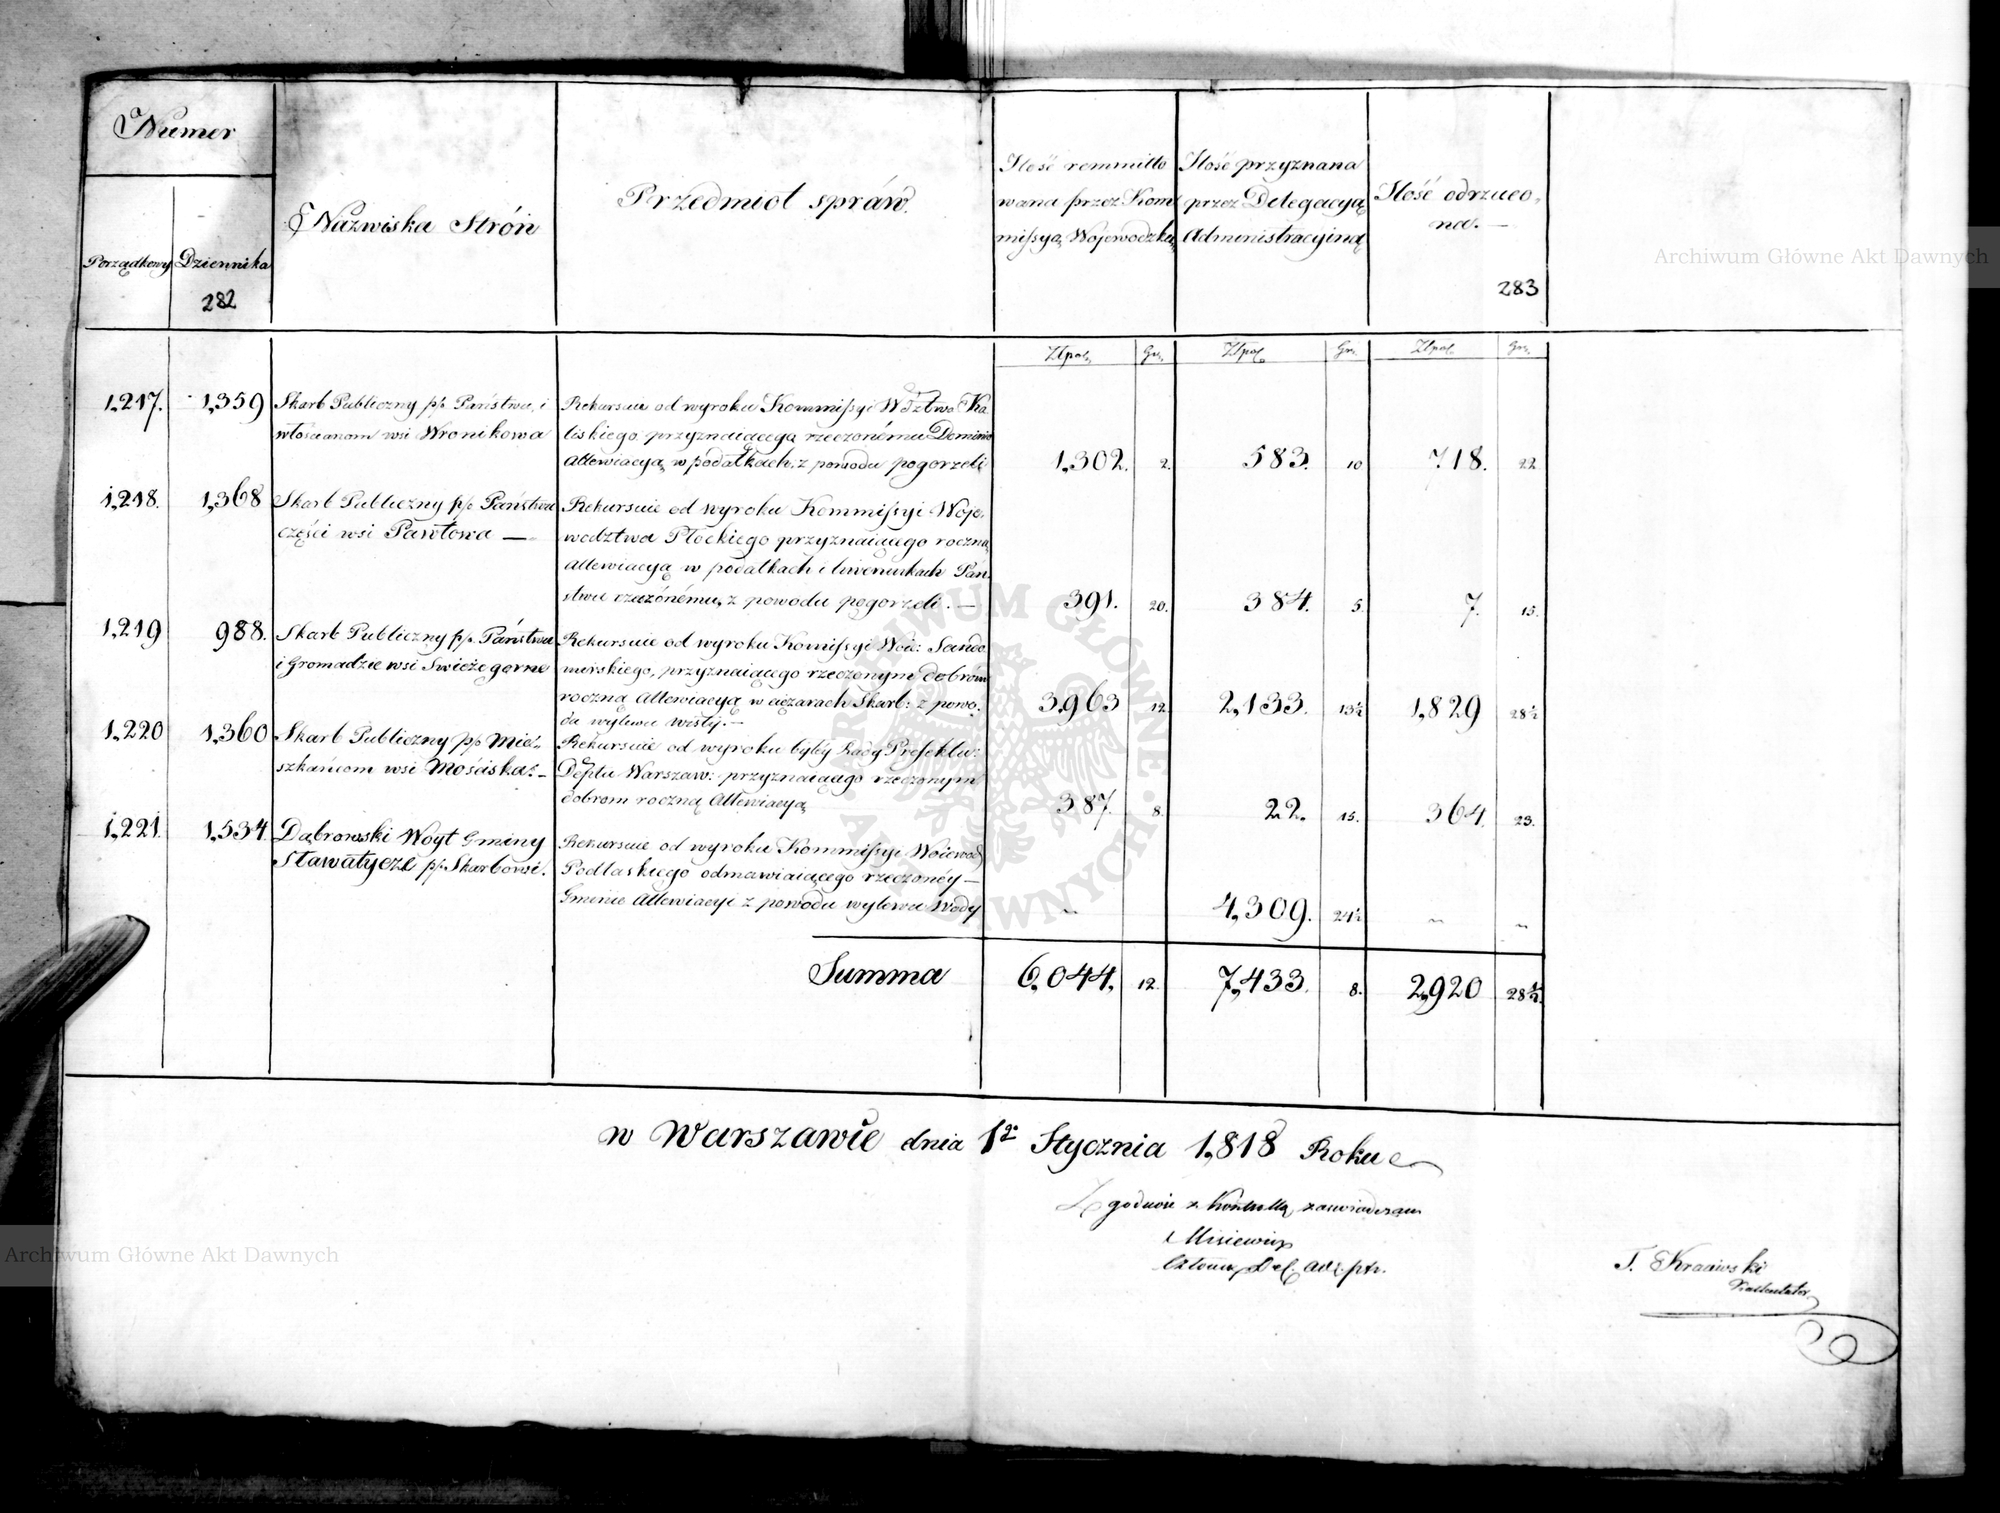 Numer
Porządkowy
Dziennika
282
Nazwiska Strón
Przedmiot spraw.
Ilość remmitto
wana przez Kom
missyą Wojewodzką
Ilość przyznana
przez Delegacyą
Administracyiną
Ilość odrzuco,
na. —
283
Złpol. Gr. Złpol. Gr. Złpol. Gr.
1,217. 1,359 Skarb Publiczny p/o Państwu, i
włościanom wsi Wronikowa
Rekursuie od wyroku Kommissyi Wdztwa Ka
liskiego przyznaiącego rzeczonému Dominio
Allewiacyą w podatkach, z powodu pogorzeli
1,302. 2. 583. 10 718. 22
1,218. 1,368 Skarb Publiczny p/o Państwu
części wsi Pawłowa —
Rekursuie od wyroku Kommissyi Woje,
wodztwa Płockiego przyznaiącego roczną
Allewiacyą w podatkach i liwerunkach Pań,
stwu rzeczonému, z powodu pogorzeli. —
391. 20. 384. 5. 7. 15.
1,219 988. Skarb Publiczny p/o Państwu
i Gromadzie wsi Swieże gorne
Rekursuie od wyroku Komissyi Woie: Sando
mirskiego, przyznaiącego rzeczonym dobróm
roczną Allewiacyą w ciężarach Skarb: z powo,
du wylewu wisły. —
3,963 12. 2,133. 13½ 1,829 28½
1,220 1,360 Skarb Publiczny p/o Mie,
szkańcom wsi Mościska. —
Rekursuie od wyroku byłey Rady Prefektu:
Deptu Warszaw: przyznaiącego rzeczonym
dobrom roczną Allewiacyą
387. 8. 22. 15. 364. 23.
1,221. 1,534. Dąbrowski Woyt Gminy
Sławatycze p/o Skarbowi.
Rekursuie od wyroku Kommissyi Woiewod
Podlaskiego odmawiaiącego rzeczonéy —
Gminie Allewiacyi z powodu wylewu Wody
~ 4,309. 24½ ~ ~
Summa 6,044. 12. 7,433. 8. 2,920 28½
w Warszawie dnia 1go Stycznia 1,818 Roku
Zgodnie z Kontrollą zaswiadczam
Misiewicz
Członek Del. Ad.
T. Kraiewski
Kalkulator
Archiwum Główne Akt Dawnych
Archiwum Główne Akt Dawnych
ARCHIWUM GŁÓWNE AKT DAWNYCH